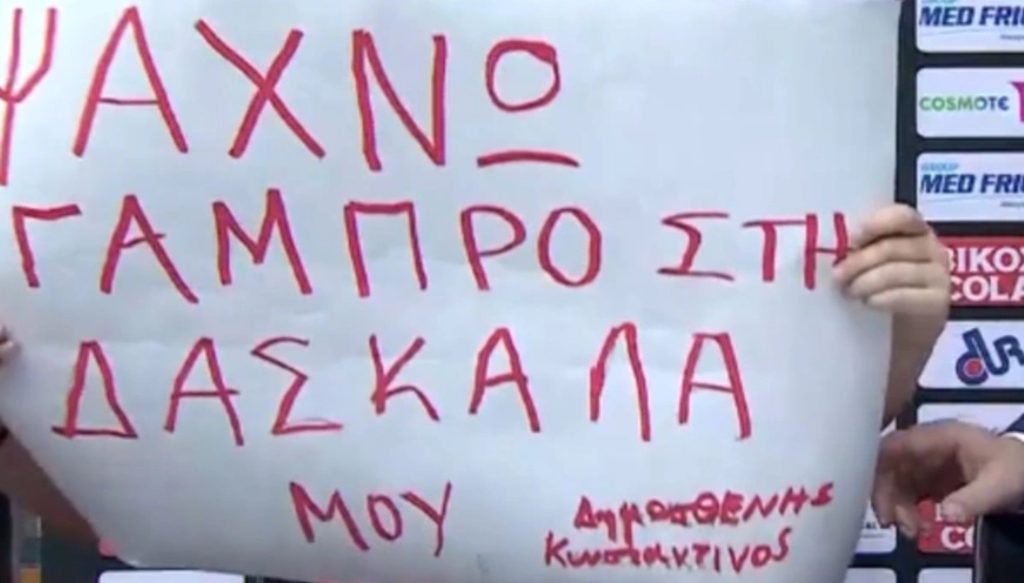 ΨΑΧΝΩ
ΓΑΜΠΡΟ ΣΤΗ
ΔΑΣΚΑΛΑ
ΜΟΥ
ΔημοσΘΕΝΗΣ
ΚωνσταντΙνος
GROUP
MED FRI
COSMOTE
GROUP
MED FRI
ΒΙΚΟΣ
COLA